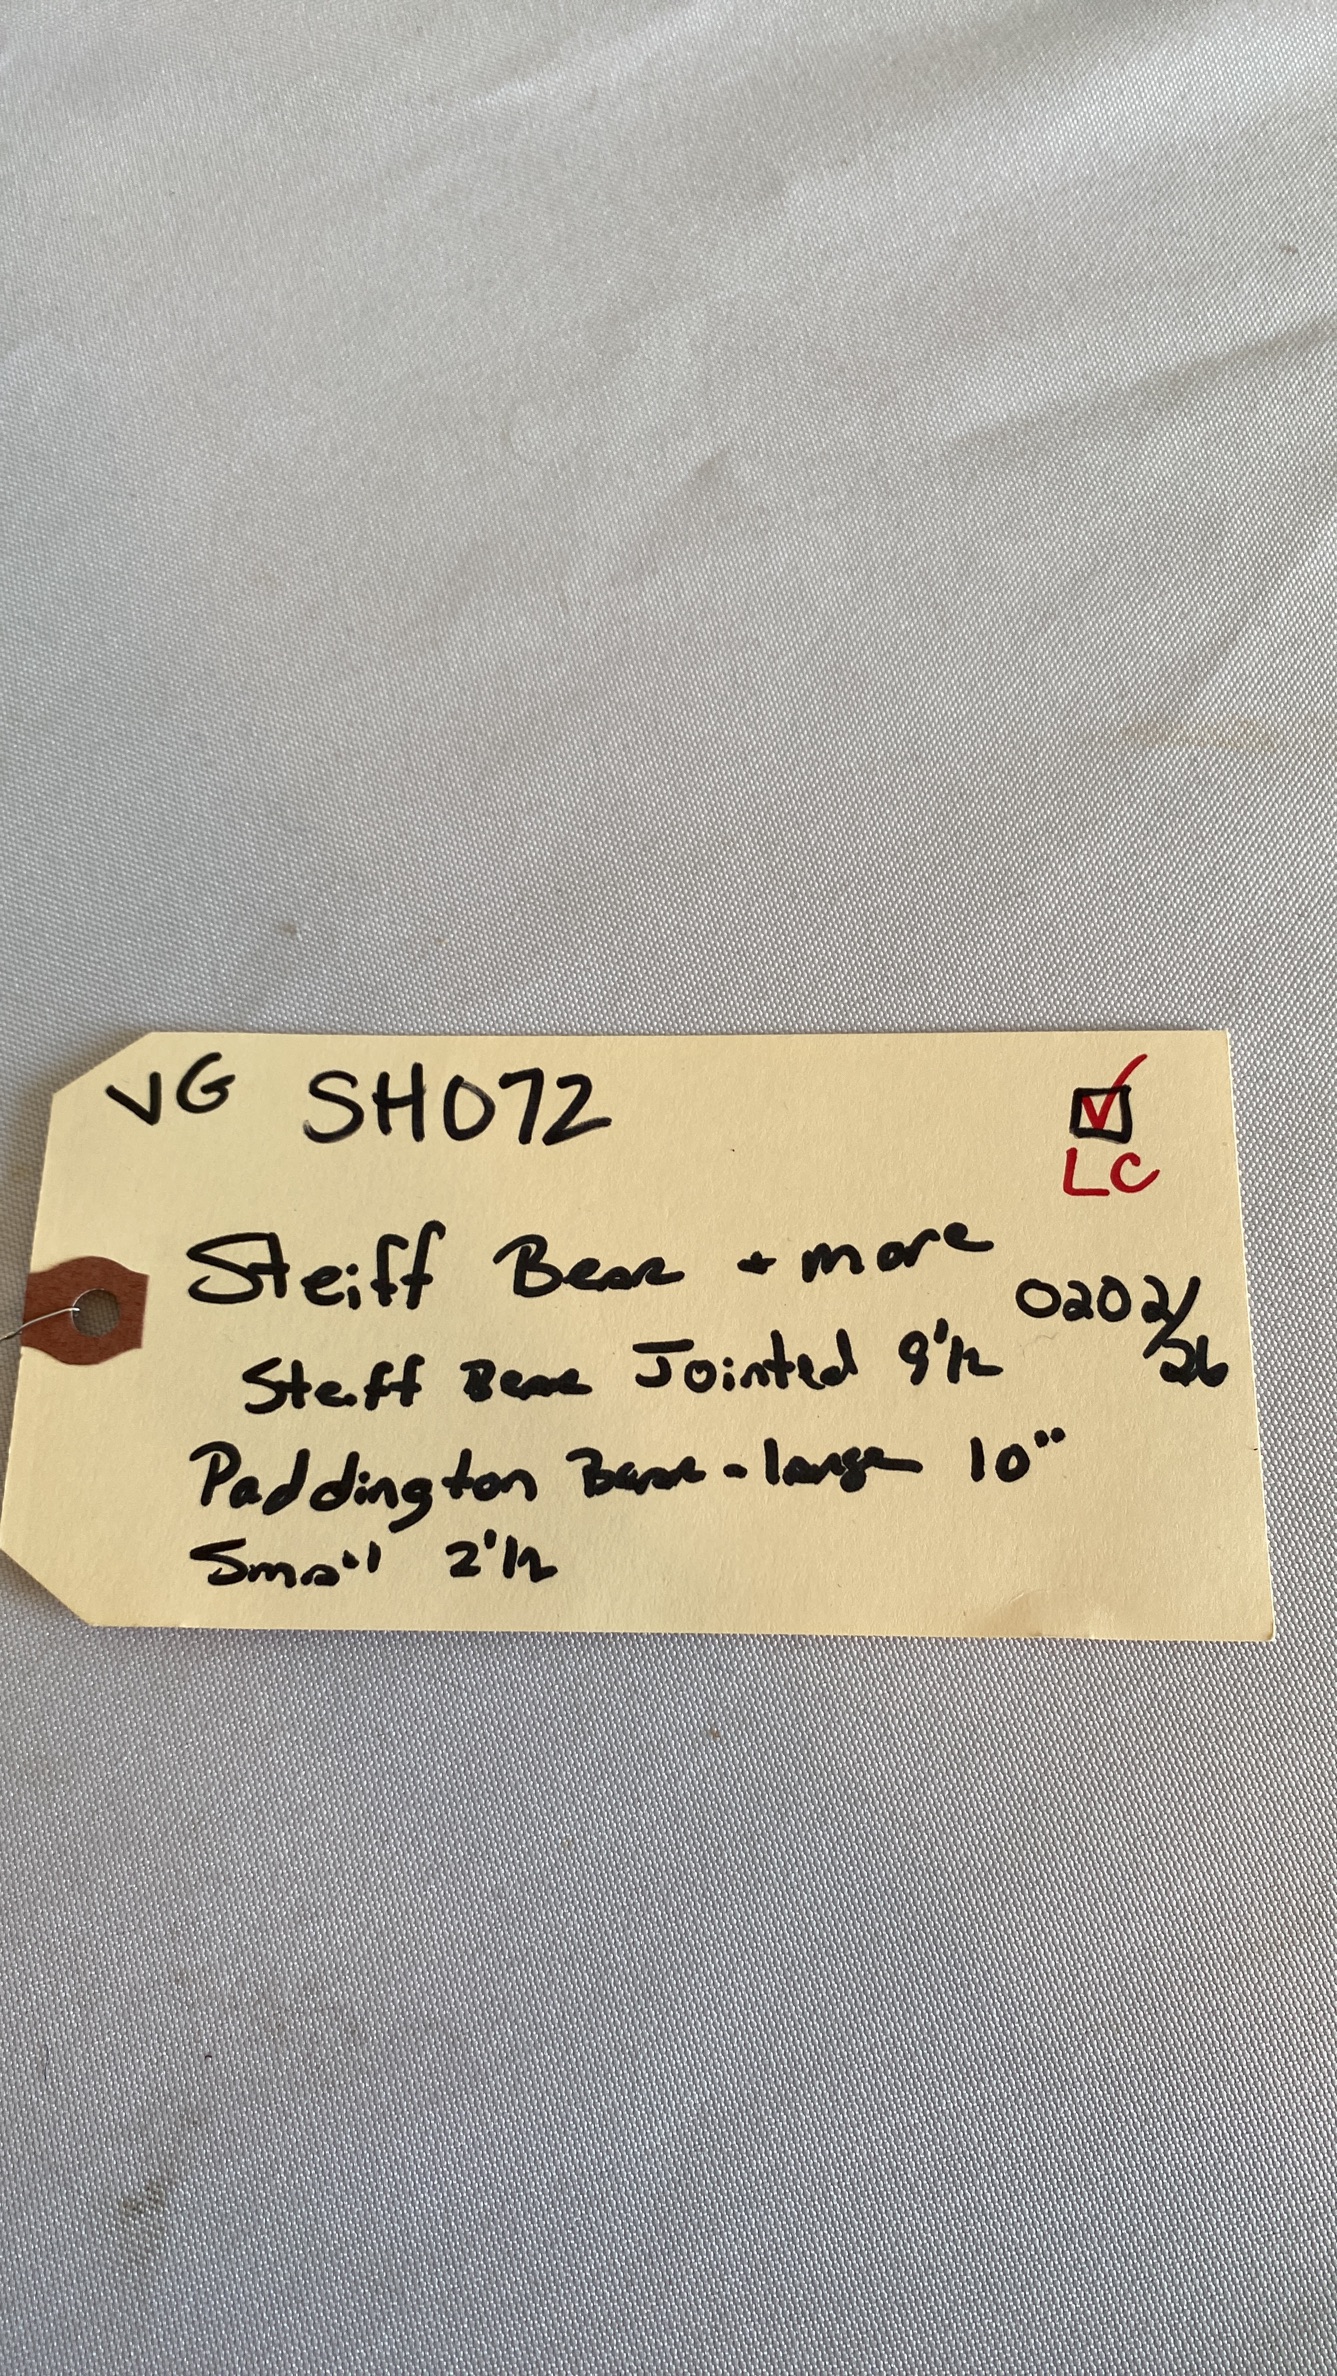 VG SH072
LC
Steiff Bear + more
0202/26
Steiff Bear Jointed 9'1/2
Paddington Bear - large 10"
Small 2'1/2